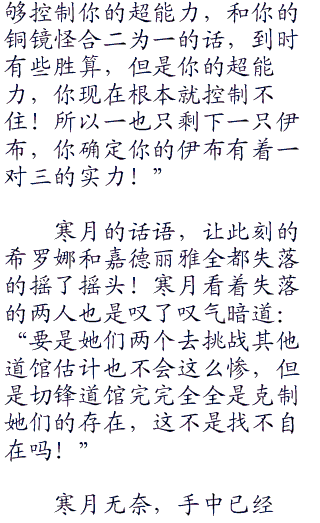 够控制你的超能力，和你的
铜镜怪合二为一的话，到时
有些胜算，但是你的超能
力，你现在根本就控制不
住！所以一也只剩下一只伊
布，你确定你的伊布有着一
对三的实力！”
寒月的话语，让此刻的
希罗娜和嘉德丽雅全都失落
的摇了摇头！寒月看着失落
的两人也是叹了叹气暗道：
“要是她们两个去挑战其他
道馆估计也不会这么惨，但
是切锋道馆完完全全是克制
她们的存在，这不是找不自
在吗！”
寒月无奈，手中已经